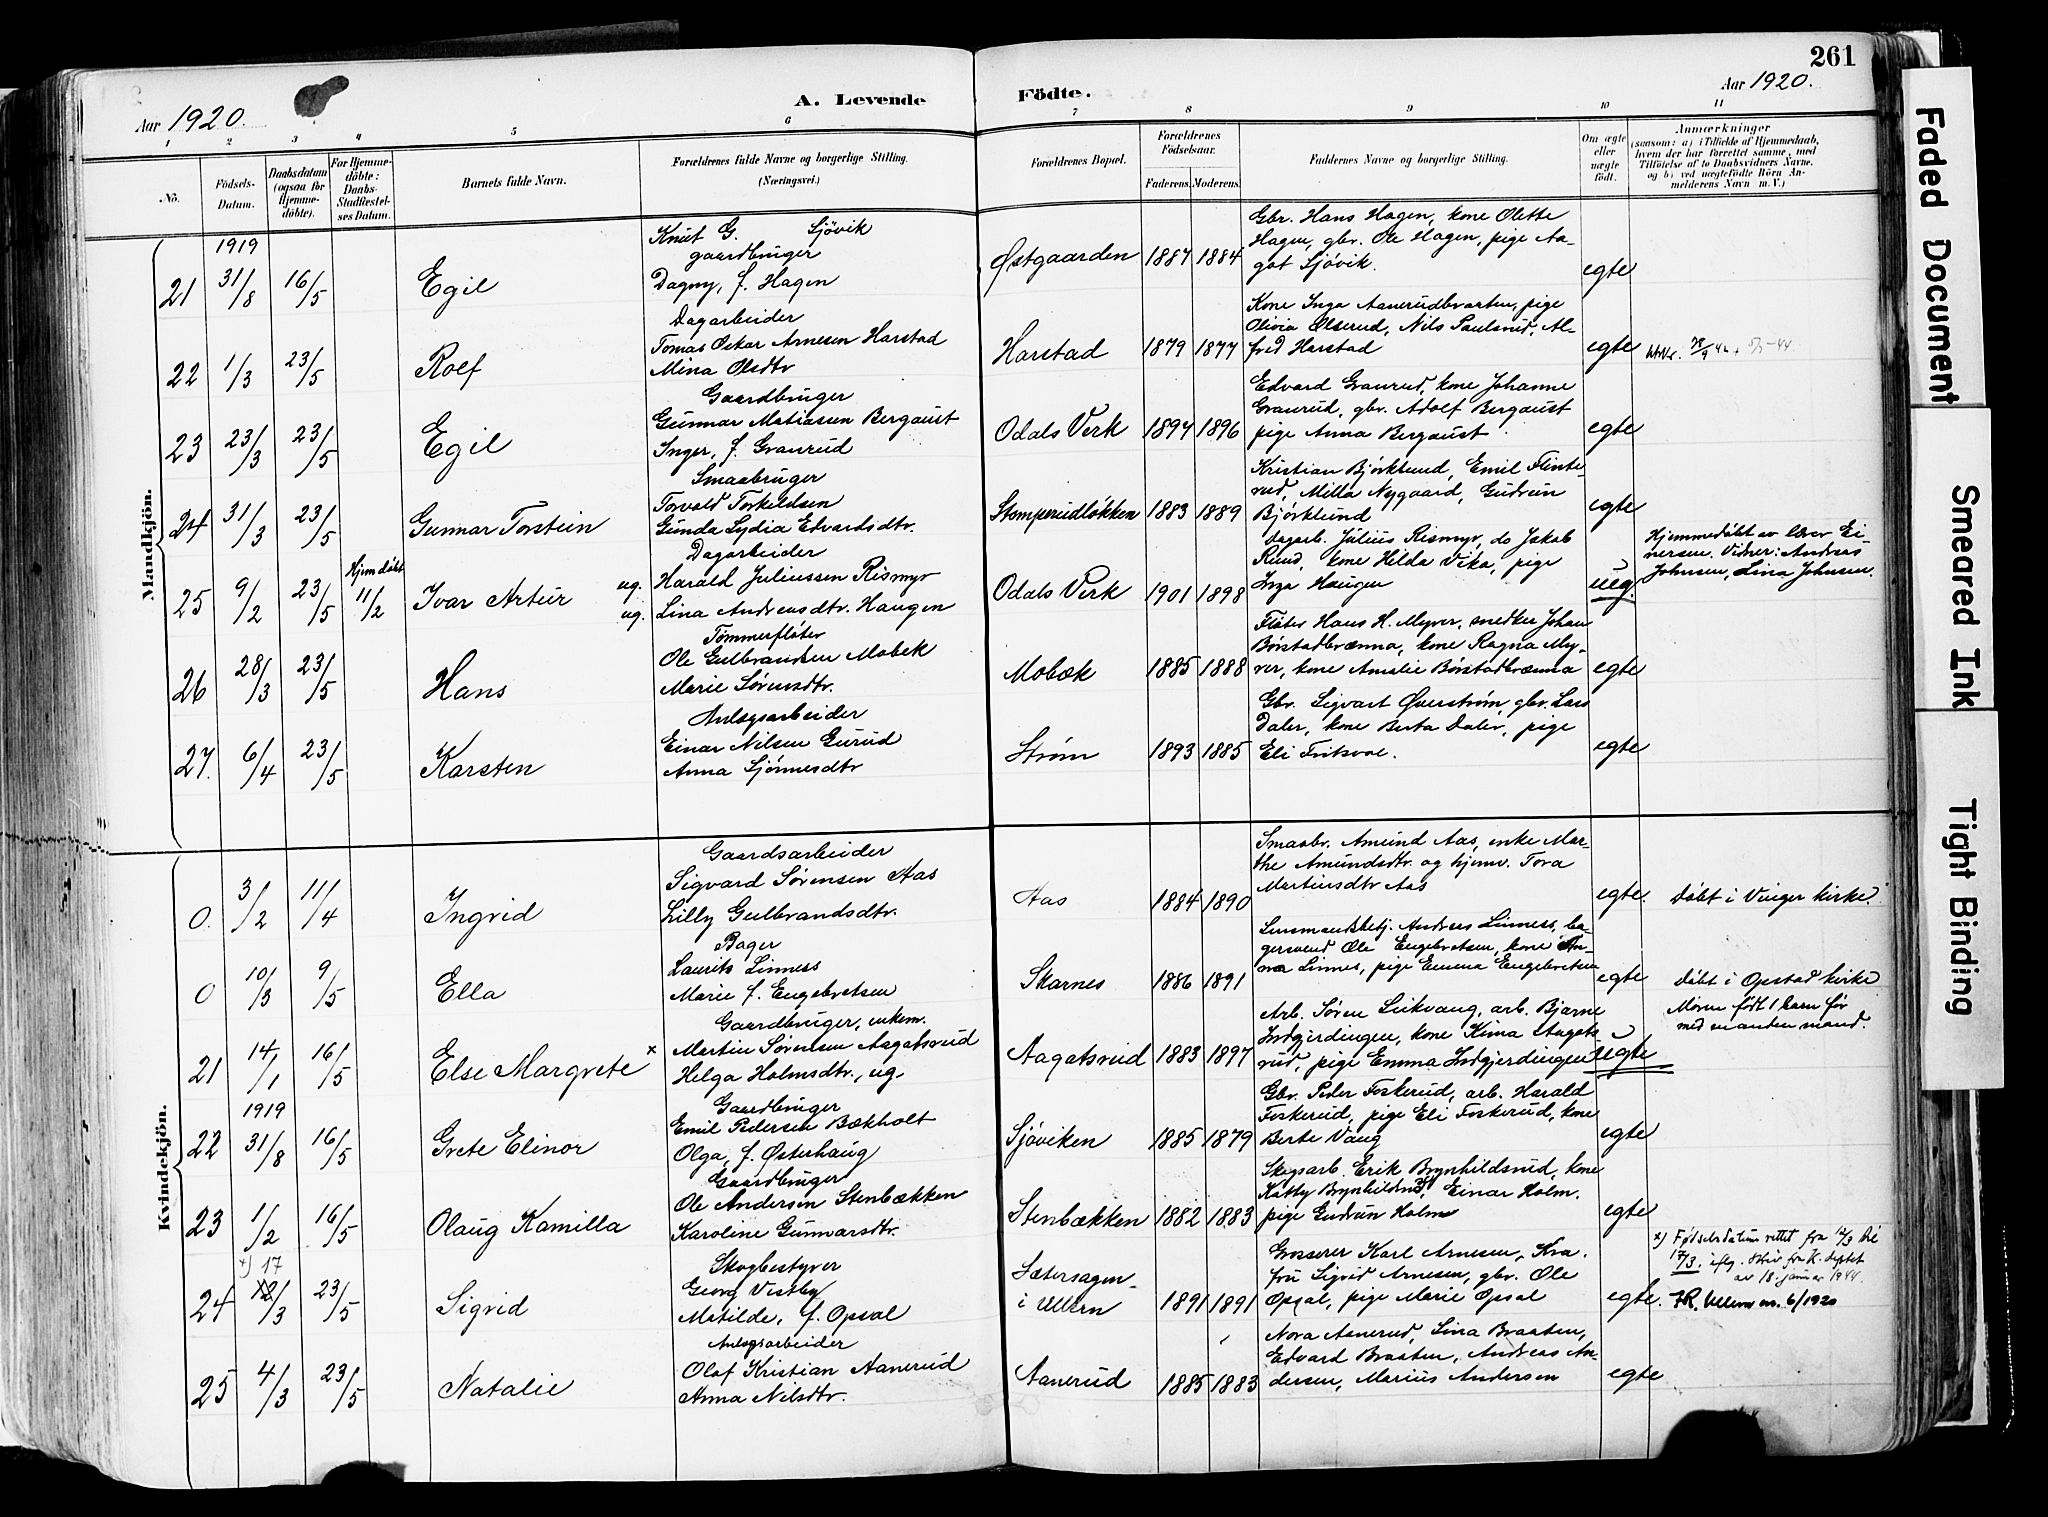 261
Aar 1920.
A. Levende Födte.
Aar 1920.
1 2 3 4 5 6 7 8 9 10 11
No.
Födsels-Datum.
Daabsdatum (ogsaa for Hjemme-döbte).
For Hjemme-döbte: Daabs-Stadfæstel-ses Datum.
Barnets fulde Navn.
Forældrenes fulde Navne og borgerlige Stilling. (Næringsvei.)
Forældrenes Bopæl.
Forældrenes Födselsaar.
Faderens. Moderens.
Faddernes Navne og borgerlige Stilling.
Om ægte eller uægte födt.
Anmærkninger
(saasom: a) i Tilfælde af Hjemmedaab,
hvem der har forrettet samme, med
Tilföielse af to Daabsvidners Navne.
og b) ved uægtefödte Börn An-
melderens Navn m. V.)
Mandkjön.
21
1919
31/8
16/5
Egil
Knut G. Sjövik
gaardbruger
Dagny, f. Hagen
Østgaarden
1887 1884
Gbr. Hans Hagen, kone Olette
Hagen, gbr. Ole Hagen, pige Aa-
got Sjövik.
egte
22
1/3
23/5
Rolf
Dagarbeider
Tomas Oskar Arnesen Harstad
Mina Olsdtr
Harstad
1879 1877
Kone Inga Aanerudbraaten, pige
Olivia Olserud, Nils Paulsrud, Al-
fred Harstad
egte
23
23/3
23/5
Egil
Gaardbruger
Gunnar Matiassen Bergaust
Inger, f. Granrud
Odals Verk
1894 1896
Edvard Granrud, kone Johanne
Granrud, gbr. Adolf Bergaust
pige Anna Bergaust
egte
24
31/3
23/5
Gunnar Torstein
Smaabruger
Torvald Torkildsen
Gunda Lydia Edvardsdtr.
Stomperudlökken
1883 1889
Kristian Björklund, Emil Flinte
rud, Milla Nygaard, Gudrun
Björklund
egte
25
9/2
23/5
Hjemdöbt
11/2
Ivar Artur
Dagarbeider
ug. Harald Juliussen Rismyr
ug. Lina Andreasdtr. Haugen
Odals Verk
1901 1898
dagarb. Julius Rismyr, do Jakob
Ruud, kone Hilda Vika, pige
Inga Haugen
ueg.
Hjemmedöbt av lærer Ei-
nersen. Vidner: Andreas
Johnsen, Lina Johnsen.
26
28/3
23/5
Hans
Tömmerflöter
Ole Gulbrandsen Mobek
Marie Sörensdtr.
Mobæk
1885 1888
Flöter Hans H. Myrer, snedker Johan
Börstadbrænna, kone Ragna My-
rer, kone Amalie Börstadbrænna
egte
27.
6/4
23/5
Karsten
Anlægsarbeider
Einar Nilsen Gurud
Anna Sjönnesdtr
Ström
1893 1885
Gbr. Sigvart Øverström, gbr. Lars
Daler, kone Berta Daler, pige
Eli Fritsvol.
egte
Kvindekjön.
0.
3/2
11/4
Ingrid
Gaardsarbeider
Sigvard Sörensen Aas
Lilly Gulbrandsdtr.
Aas
1884 1890
Smaabr. Amund Aas, enke Mar-
the Amundsdtr. og hjemv. Tora
Martinsdtr Aas
egte.
Döbt i Vinger kirke.
0
10/3
9/5
Ella
Bager
Laurits Linness
Marie f. Engebretsen
Skarnes
1886 1891
Lensmandsbetj. Anders Linness, ba-
gersvend Ole Engebretsen, kone An-
na Linnes, pige Emma Engebretsen
egte
Döbt i Opstad kirke
21
14/1
16/5
Else Margrete x
Gaardbruger, enkem.
Martin Sörensen Aagotsrud
Helga Holmsdtr., ug
Aagotsrud
1883 1897
Arb. Sören Liikvang, arb. Bjarne
Indgjerdingen, kone Kima Aagots-
rud, pige Emma Indgjerdingen
uegte
Moren födt 1 barn för
med en anden mand.
22
1919
31/8
16/5
Grete Elinor
Gaardbruger
Emil Pedersen Bækholt
Olga, f. Østerhaug
Sjöviken
1885 1879
Gbr. Peder Foskerud, arb. Harald
Foskerud, pige Eli Foskerud, kone
Berte Vaug
egte
23
1/2
16/5
Olaug Kamilla
Gaardbruger
Ole Andersen Stenbækken
Karoline Gunnarsdtr.
Stenbækken
1882 1883
Skogsarb. Erik Brynhildsrud, kone
Katty Brynhildsrud, Einar Holm.
pige Gudrun Holm
egte
24
x) 17
12/3
23/5
Sigrid
Skogbestyrer
Georg Vestby
Matilde, f. Opsal
Sætersagen-
i Ullern
1891 1891
Grosserer Karl Arnesen, Kra.
fru Sigrid Arnesen, gbr. Ole
Opsal, pige Marie Opsal
egte.
x) Födselsdatum rettet fra 12/3 til
17/3. iflg. skriv fra K. deptet
av 18. januar 1944.
FR. Ullern nr. 6/1920
25
4/3
23/5
Natalie
Anlægsarbeider
Olaf Kristian Aanerud
Anna Nilsdtr.
Aanerud
1885 1883
Nora Aanerud, Lina Braaten,
Edvard Braaten, Andreas An-
dersen, Marius Andersen
egte
Faded Document
Smeared Ink
Tight Binding